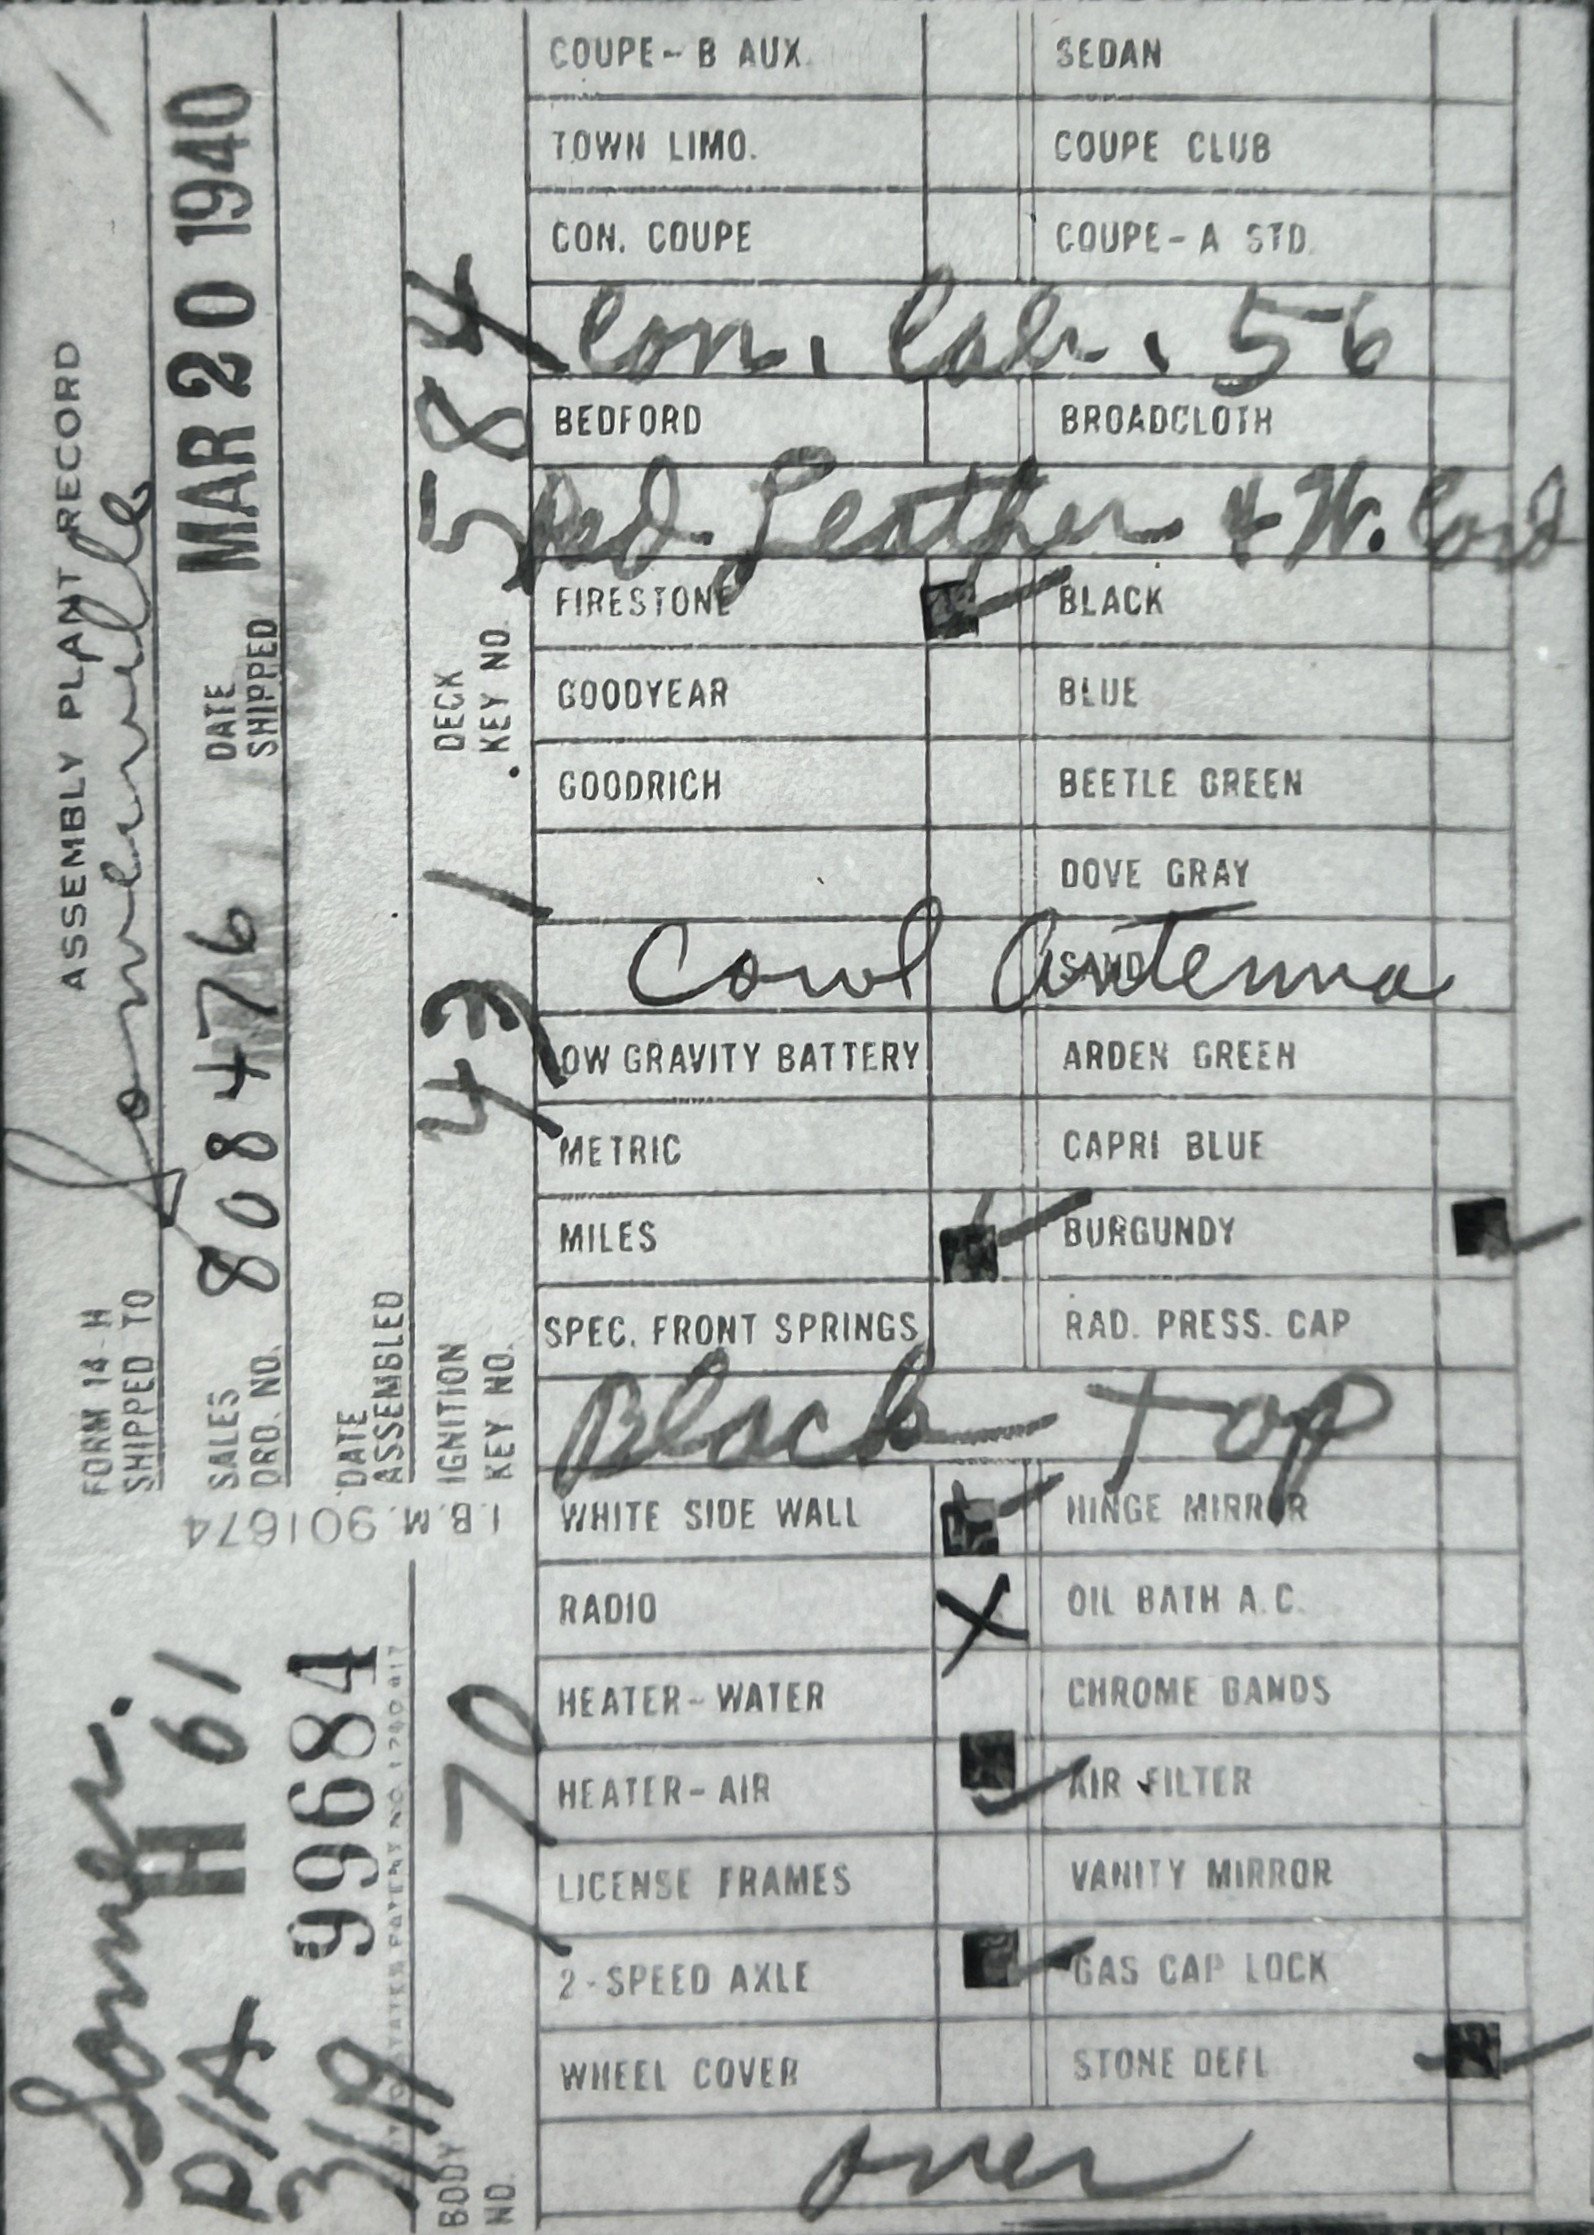 ASSEMBLY PLANT RECORD
FORM 14-H
SHIPPED TO Somerville
SALES ORD. NO. 808476 DATE SHIPPED MAR 20 1940
DATE ASSEMBLED
IGNITION KEY NO. 431 DECK KEY NO. 584
I.B.M. 901674
Somer.
D/A H 61
3/19 99684
BODY NO. 170
COUPE-B AUX. SEDAN
TOWN LIMO. COUPE CLUB
CON. COUPE COUPE-A STD.
Con. Cab. 56
BEDFORD BROADCLOTH
Red Leather & W. Cord
FIRESTONE BLACK
GOODYEAR BLUE
GOODRICH BEETLE GREEN
DOVE GRAY
SAND
Cowl Antenna
LOW GRAVITY BATTERY ARDEN GREEN
METRIC CAPRI BLUE
MILES BURGUNDY
SPEC. FRONT SPRINGS RAD. PRESS. CAP
Black Top
WHITE SIDE WALL HINGE MIRROR
RADIO X OIL BATH A.C.
HEATER-WATER CHROME BANDS
HEATER-AIR AIR FILTER
LICENSE FRAMES VANITY MIRROR
2-SPEED AXLE GAS CAP LOCK
WHEEL COVER STONE DEFL
over